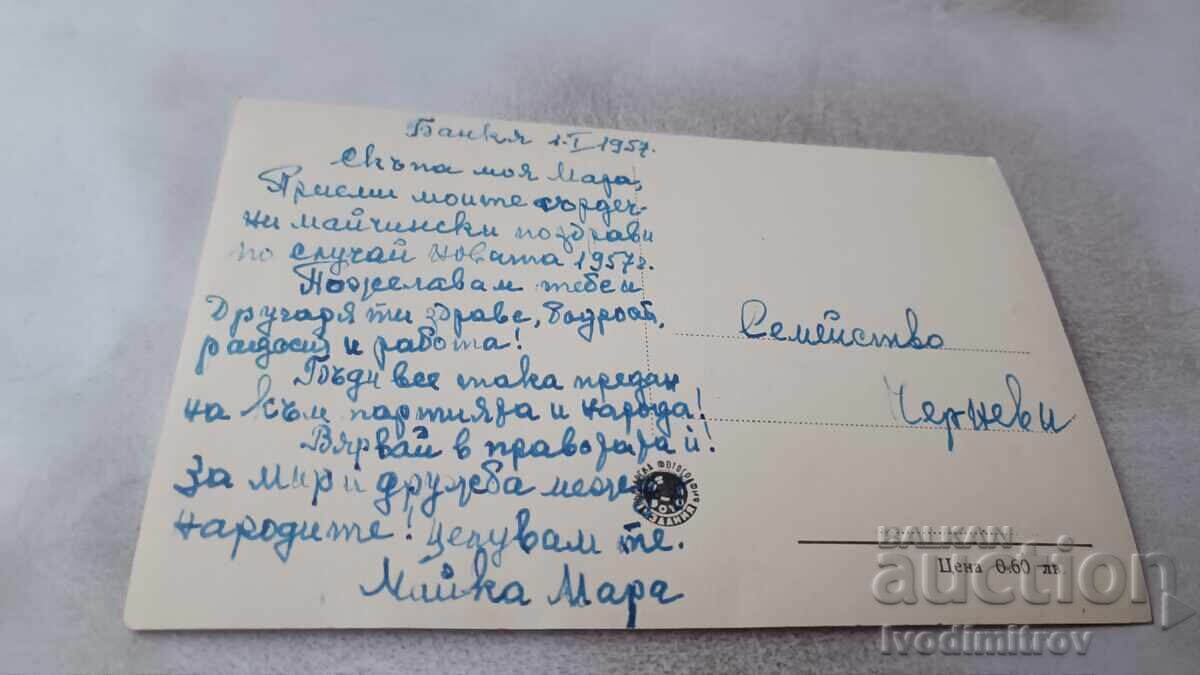 Банкя 1.I 1957.
Скъпа моя Мара,
Приеми моите сърдеч-
ни майчински поздрави
по случай новата 1957г.
Пожелавам тебе и
здраве, бодрост,
радост и работа!
Бъди все така предан
на към партията и народа!
Вярвай в
за мир и дружба между
народите! Целувам те.
Майка Мара
Семейство
Черневи
Цена 0·60 лв.
BALKAN
auction
Ivodimitrov